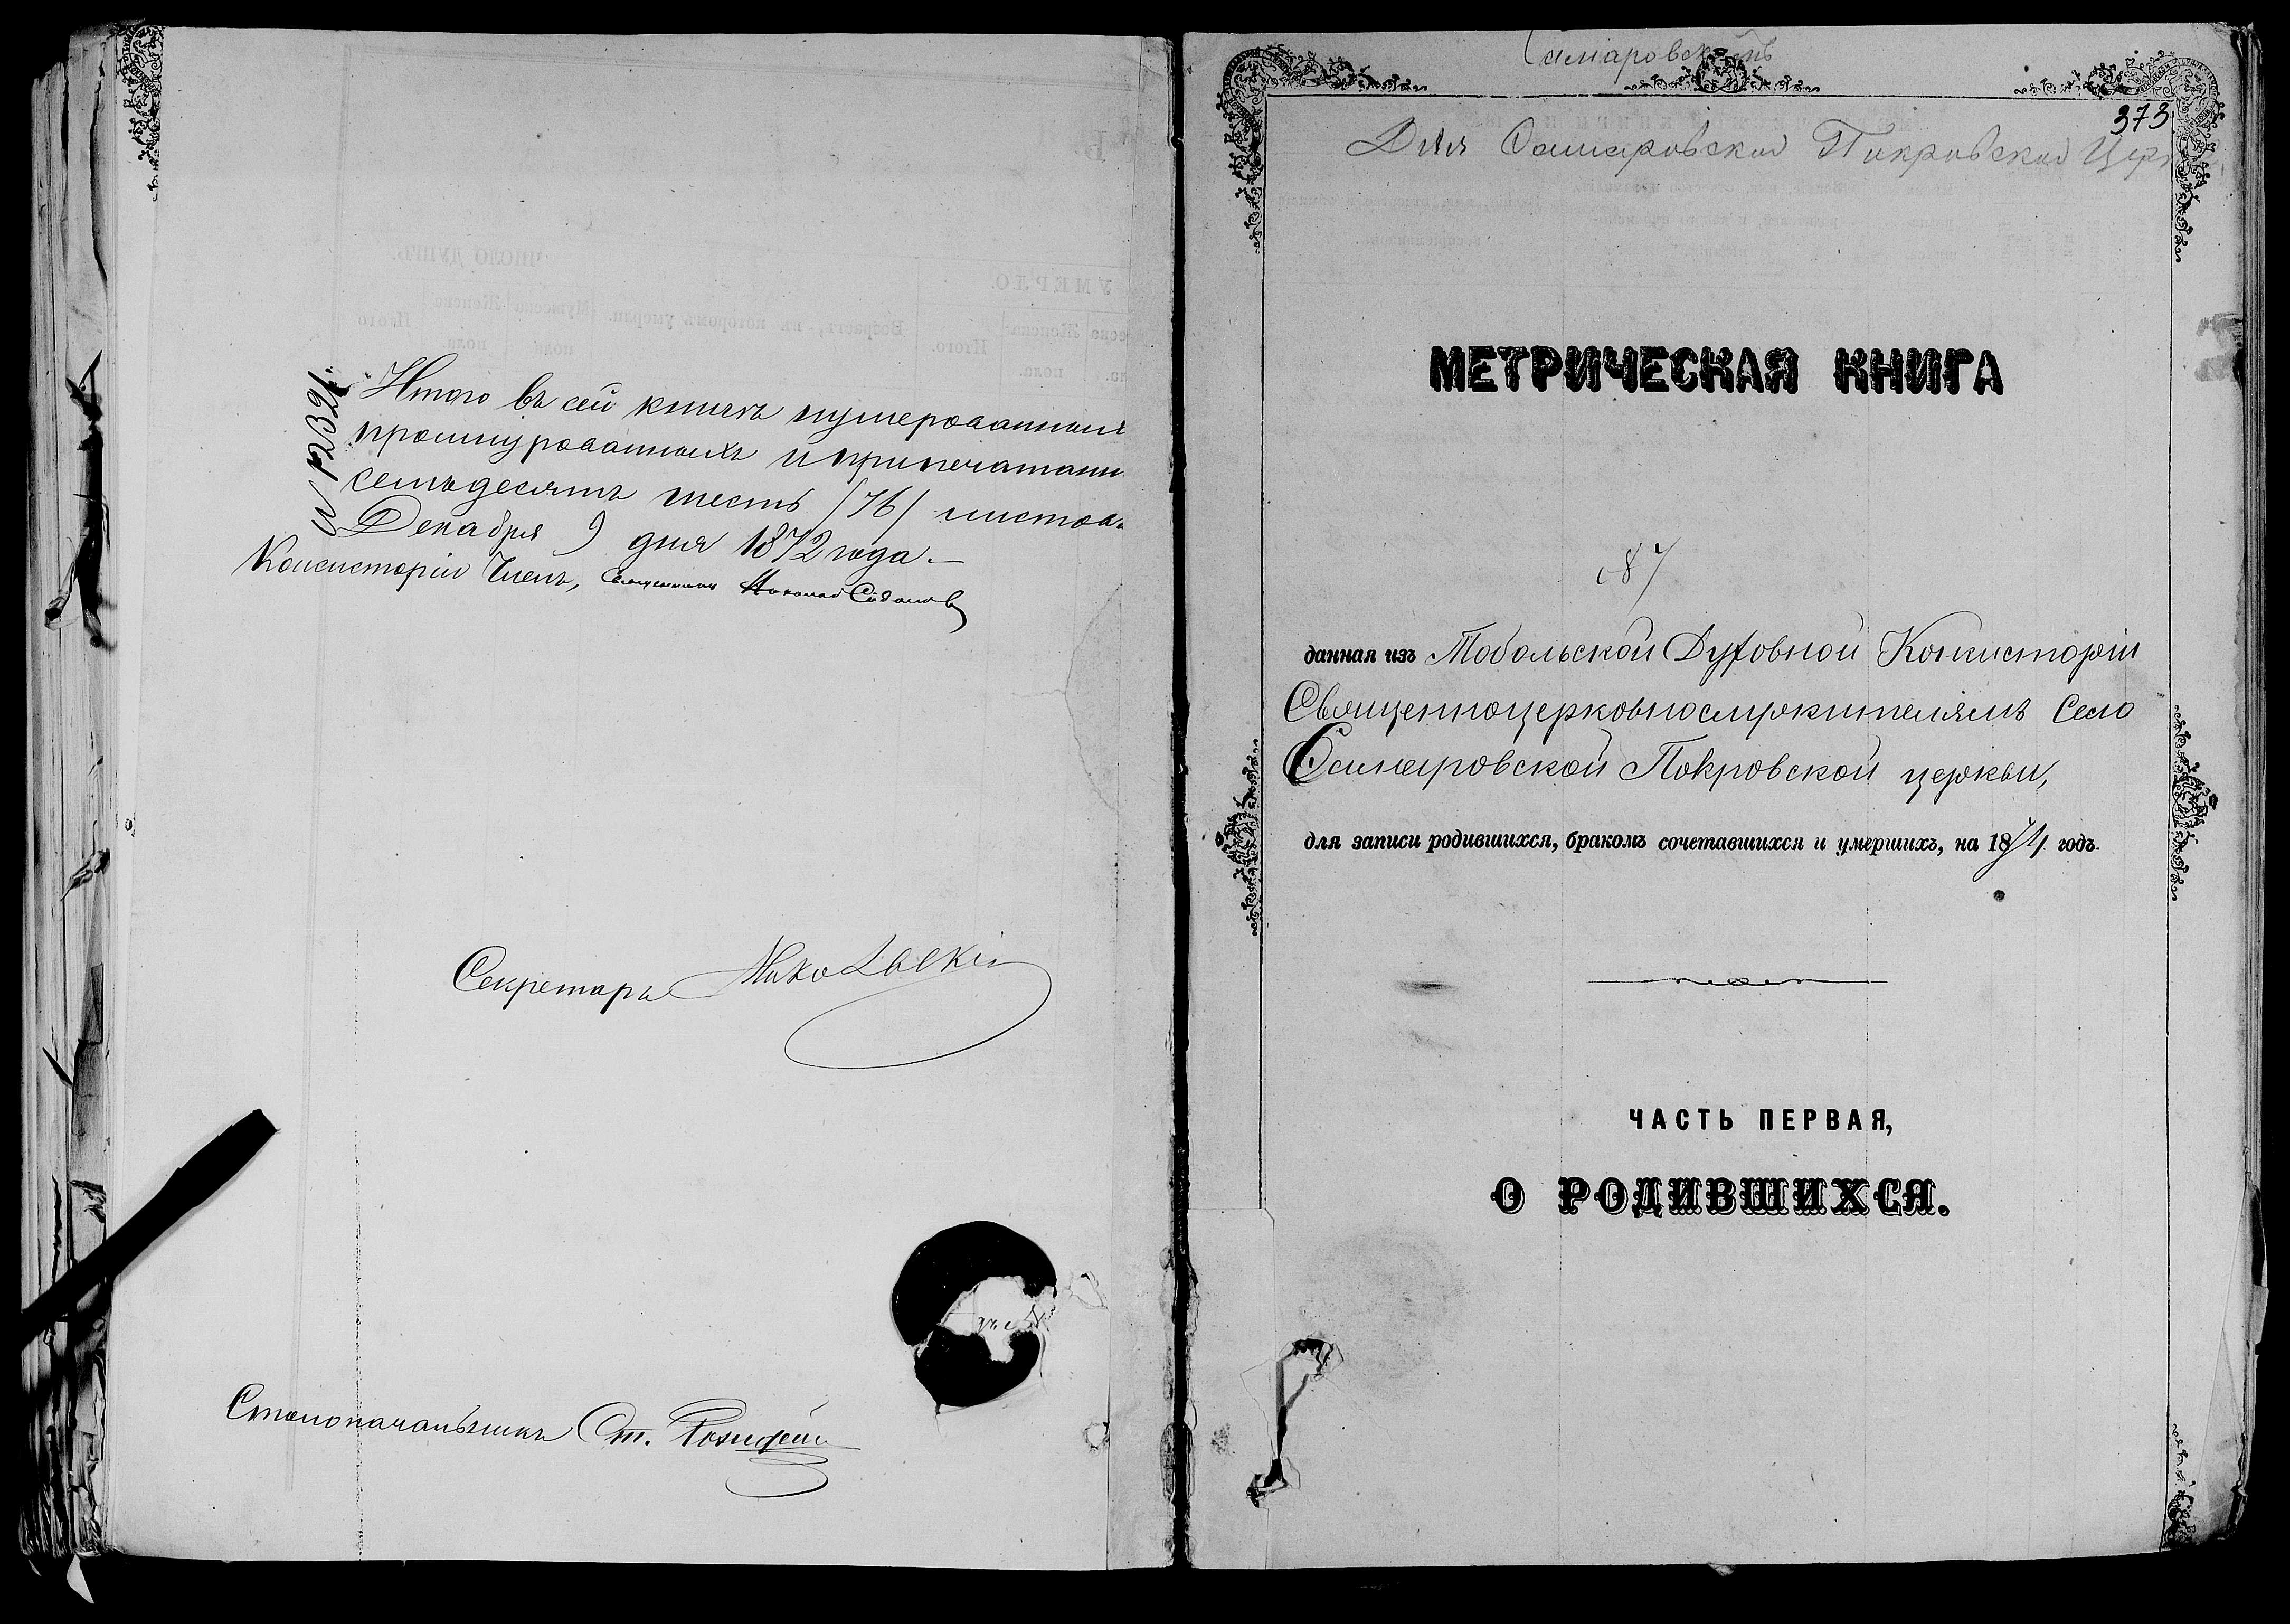 № 1232/.
Итого въ сей книгѣ нумерованныхъ
прошнурованныхъ и припечатанн
семьдесятъ шесть /76/ листовъ
Декабря 9 дня 1872 года.—
Консисторіи Членъ, Священникъ Николай
Секретарь Никольскій
Столоначальникъ Ст.
Самаровскомъ
373
Для Самаровской Покровской Церк
МЕТРИЧЕСКАЯ КНИГА
187
данная изъ Тобольской Духовной Консисторіи
Священноцерковнослужителямъ Село
Самаровской Покровской церкви,
для записи родившихся, бракомъ сочетавшихся и умершихъ, на 1874 годъ.
ЧАСТЬ ПЕРВАЯ,
О РОДИВШИХСЯ.